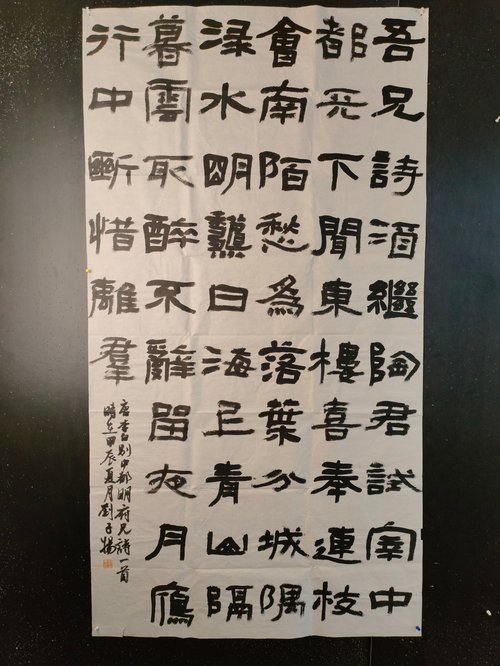 吾兄詩酒繼陶君試宰中
都天下聞東樓喜奉連枝
會南陌愁為落葉分城隅
渌水明龝日海上青山隔
暮雲取醉不辭留夜月鴈
行中斷惜離羣
唐李白别中都明府兄詩一首
時在甲辰夏月劉子